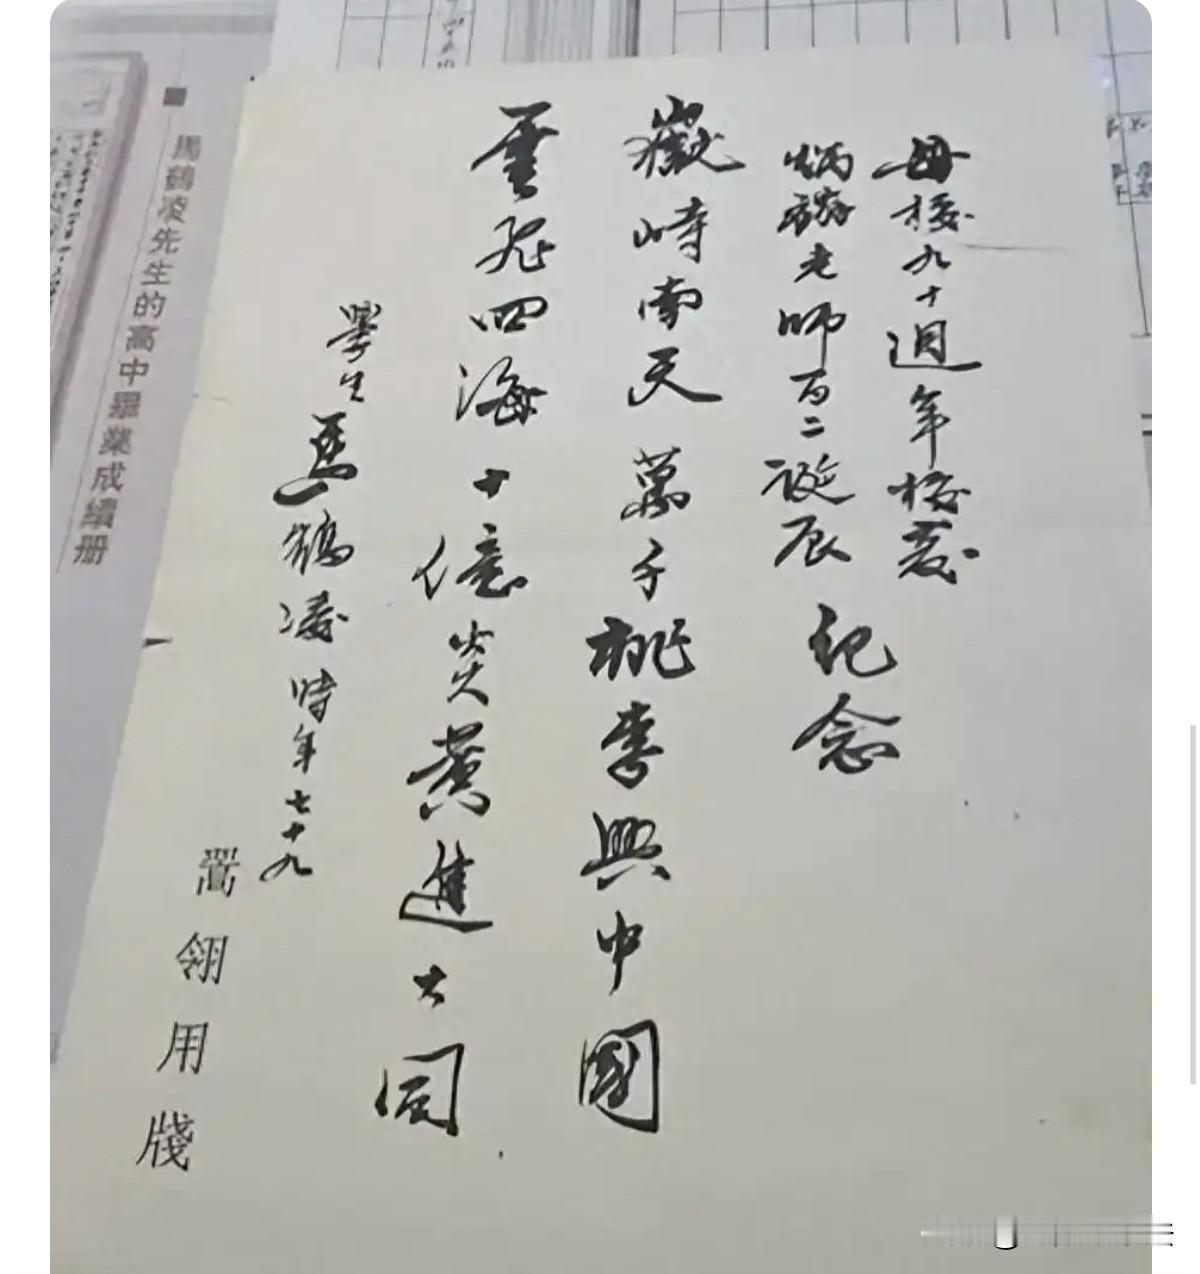 母校九十週年校慶
炳麟老師百二誕辰紀念
嶽峙南天萬千桃李興中國
雲飛四海十億炎黃進大同
學生馬鶴凌時年七十九
翯翎用牋
■馬鶴凌先生的高中畢業成績册